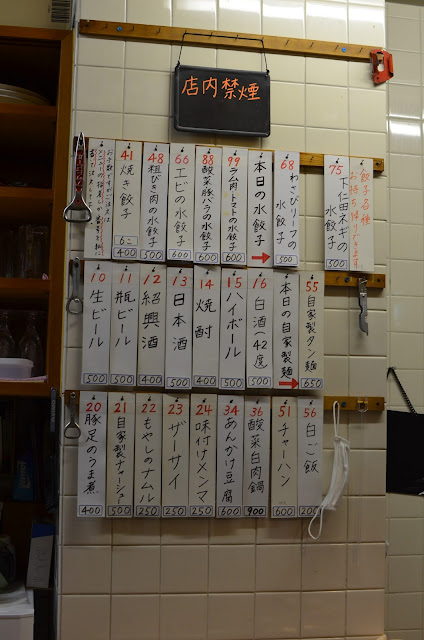 店内禁煙
お手数ですがご注文は
メニューの番号か
41
焼き餃子
6コ
400
48
粗びき肉の水餃子
500
66
エビの水餃子
600
88
酸菜豚バラの水餃子
600
99
ラム肉トマトの水餃子
600
本日の水餃子
68
わさびリーフの
水餃子
500
75
下仁田ネギの
水餃子
500
餃子各種
お持ち帰りできます
10
生ビール
500
11
瓶ビール
500
12
紹興酒
400
13
日本酒
500
14
焼酎
400
15
ハイボール
500
16
白酒(42度)
500
本日の自家製麺
55
自家製タン麺
650
20
豚足のうま煮
400
21
自家製チャーシュー
500
22
もやしのナムル
250
23
ザーサイ
250
24
味付けメンマ
250
34
あんかけ豆腐
600
36
酸菜白肉鍋
900
51
チャーハン
600
56
白ご飯
200